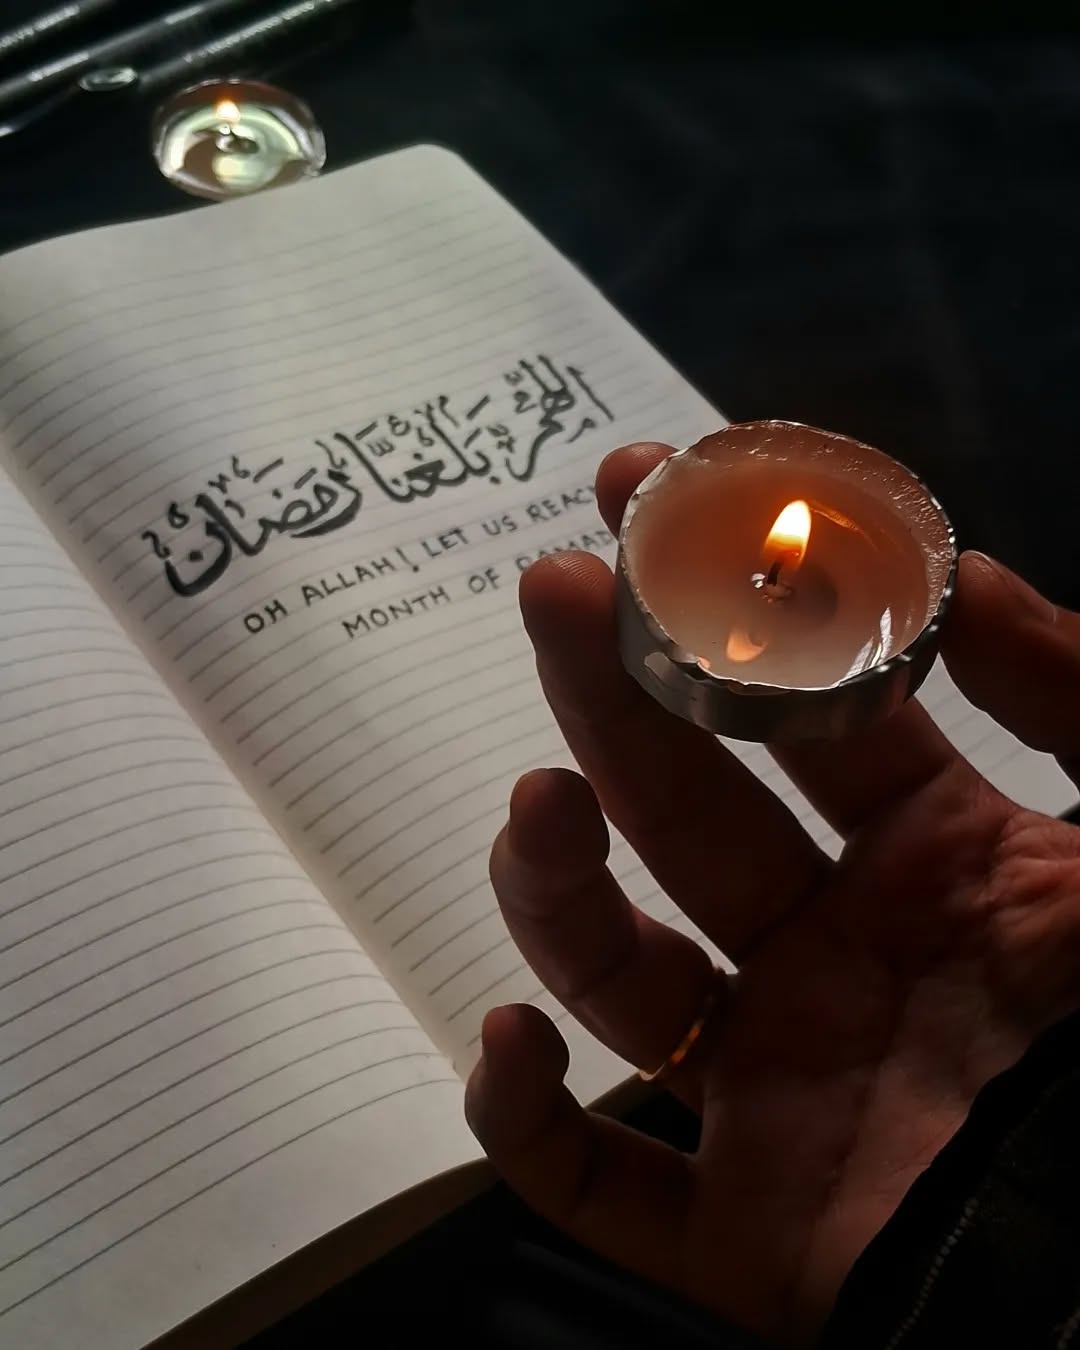 اللهم بَلِّغْنَا رَمَضَان
OH ALLAH! LET US REACH
MONTH OF RAMAD